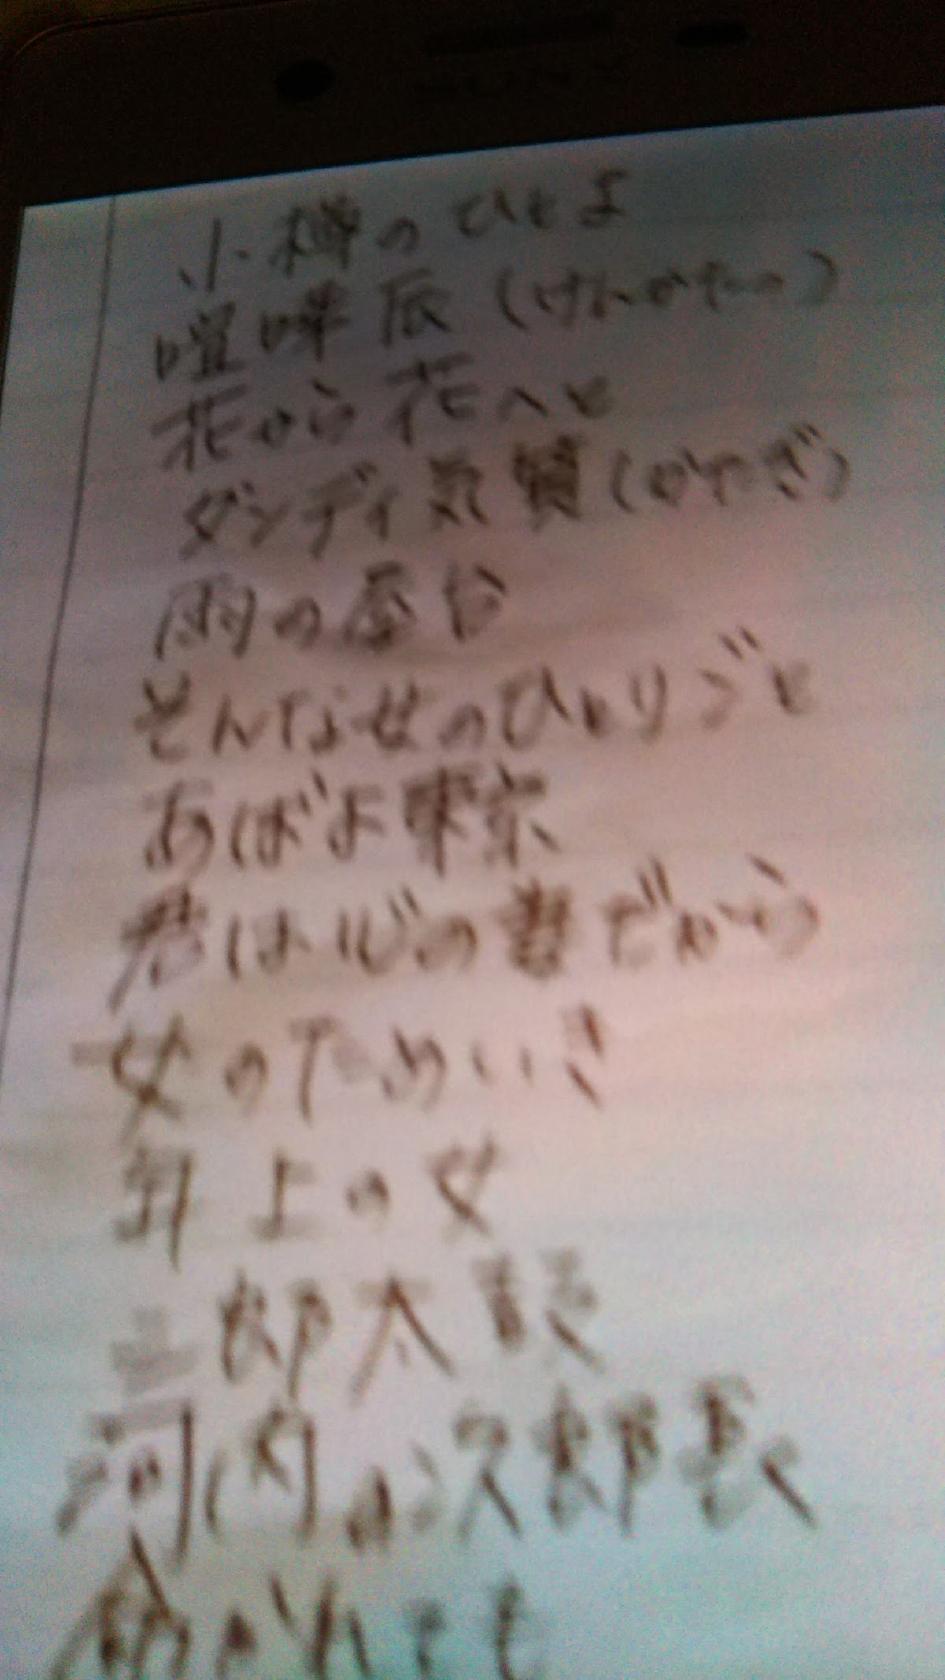 SONY
小樽のひとよ
喧嘩辰(けんかたつ)
花から花へと
ダンディ気質(かたぎ)
雨の屋台
そんな女のひとりごと
あばよ東京
君は心の妻だから
女のためいき
井上の女
三郎太鼓
河内の次郎長
命かれても